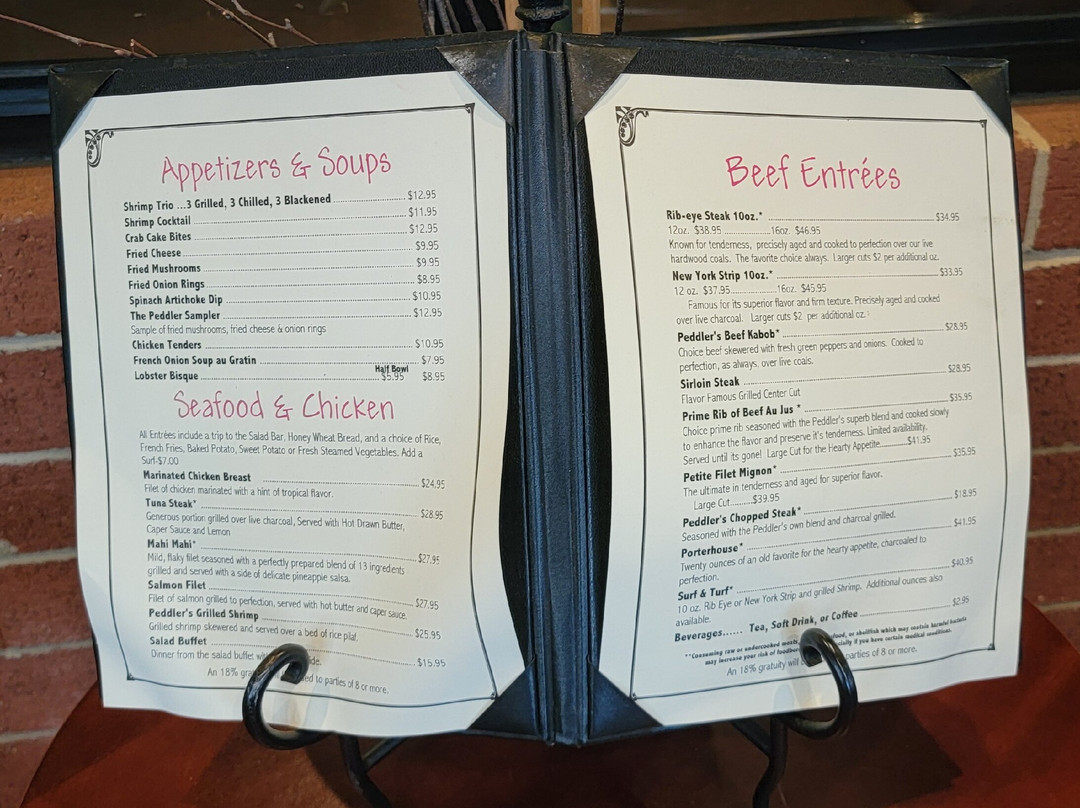 Appetizers & Soups
Shrimp Trio ...3 Grilled, 3 Chilled, 3 Blackened $12.95
Shrimp Cocktail $11.95
Crab Cake Bites $12.95
Fried Cheese $9.95
Fried Mushrooms $9.95
Fried Onion Rings $8.95
Spinach Artichoke Dip $10.95
The Peddler Sampler $12.95
Sample of fried mushrooms, fried cheese & onion rings
Chicken Tenders $10.95
French Onion Soup au Gratin $7.95
Half Bowl
Lobster Bisque $5.95 $8.95
Seafood & Chicken
All Entrées include a trip to the Salad Bar, Honey Wheat Bread, and a choice of Rice,
French Fries, Baked Potato, Sweet Potato or Fresh Steamed Vegetables. Add a
Surf-$7.00
Marinated Chicken Breast $24.95
Filet of chicken marinated with a hint of tropical flavor.
Tuna Steak* $28.95
Generous portion grilled over live charcoal, Served with Hot Drawn Butter,
Caper Sauce and Lemon
Mahi Mahi* $27.95
Mild, flaky filet seasoned with a perfectly prepared blend of 13 ingredients
grilled and served with a side of delicate pineapple salsa.
Salmon Filet $27.95
Filet of salmon grilled to perfection, served with hot butter and caper sauce.
Peddler's Grilled Shrimp $25.95
Grilled shrimp skewered and served over a bed of rice pilaf.
Salad Buffet $15.95
Dinner from the salad buffet
An 18% to parties of 8 or more.
Beef Entrées
Rib-eye Steak 10oz.* $34.95
12oz. $38.95 16oz. $46.95
Known for tenderness, precisely aged and cooked to perfection over our live
hardwood coals. The favorite choice always. Larger cuts $2 per additional oz.
New York Strip 10oz.* $33.95
12 oz. $37.95 16oz. $45.95
Famous for its superior flavor and firm texture. Precisely aged and cooked
over live charcoal. Larger cuts $2 per additional oz.
Peddler's Beef Kabob* $28.95
Choice beef skewered with fresh green peppers and onions. Cooked to
perfection, as always, over live coals.
Sirloin Steak $28.95
Flavor Famous Grilled Center Cut
Prime Rib of Beef Au Jus * $35.95
Choice prime rib seasoned with the Peddler's superb blend and cooked slowly
to enhance the flavor and preserve it's tenderness. Limited availability.
Served until its gone! Large Cut for the Hearty Appetite $41.95
Petite Filet Mignon* $35.95
The ultimate in tenderness and aged for superior flavor.
Large Cut $39.95
Peddler's Chopped Steak* $18.95
Seasoned with the Peddler's own blend and charcoal grilled.
Porterhouse* $41.95
Twenty ounces of an old favorite for the hearty appetite, charcoaled to
perfection.
Surf & Turf* $40.95
10 oz. Rib Eye or New York Strip and grilled Shrimp. Additional ounces also
available.
Beverages...... Tea, Soft Drink, or Coffee $2.95
**Consuming raw or undercooked meats, or shellfish which may contain harmful bacteria
may increase your risk of if you have certain medical conditions.
An 18% gratuity will parties of 8 or more.